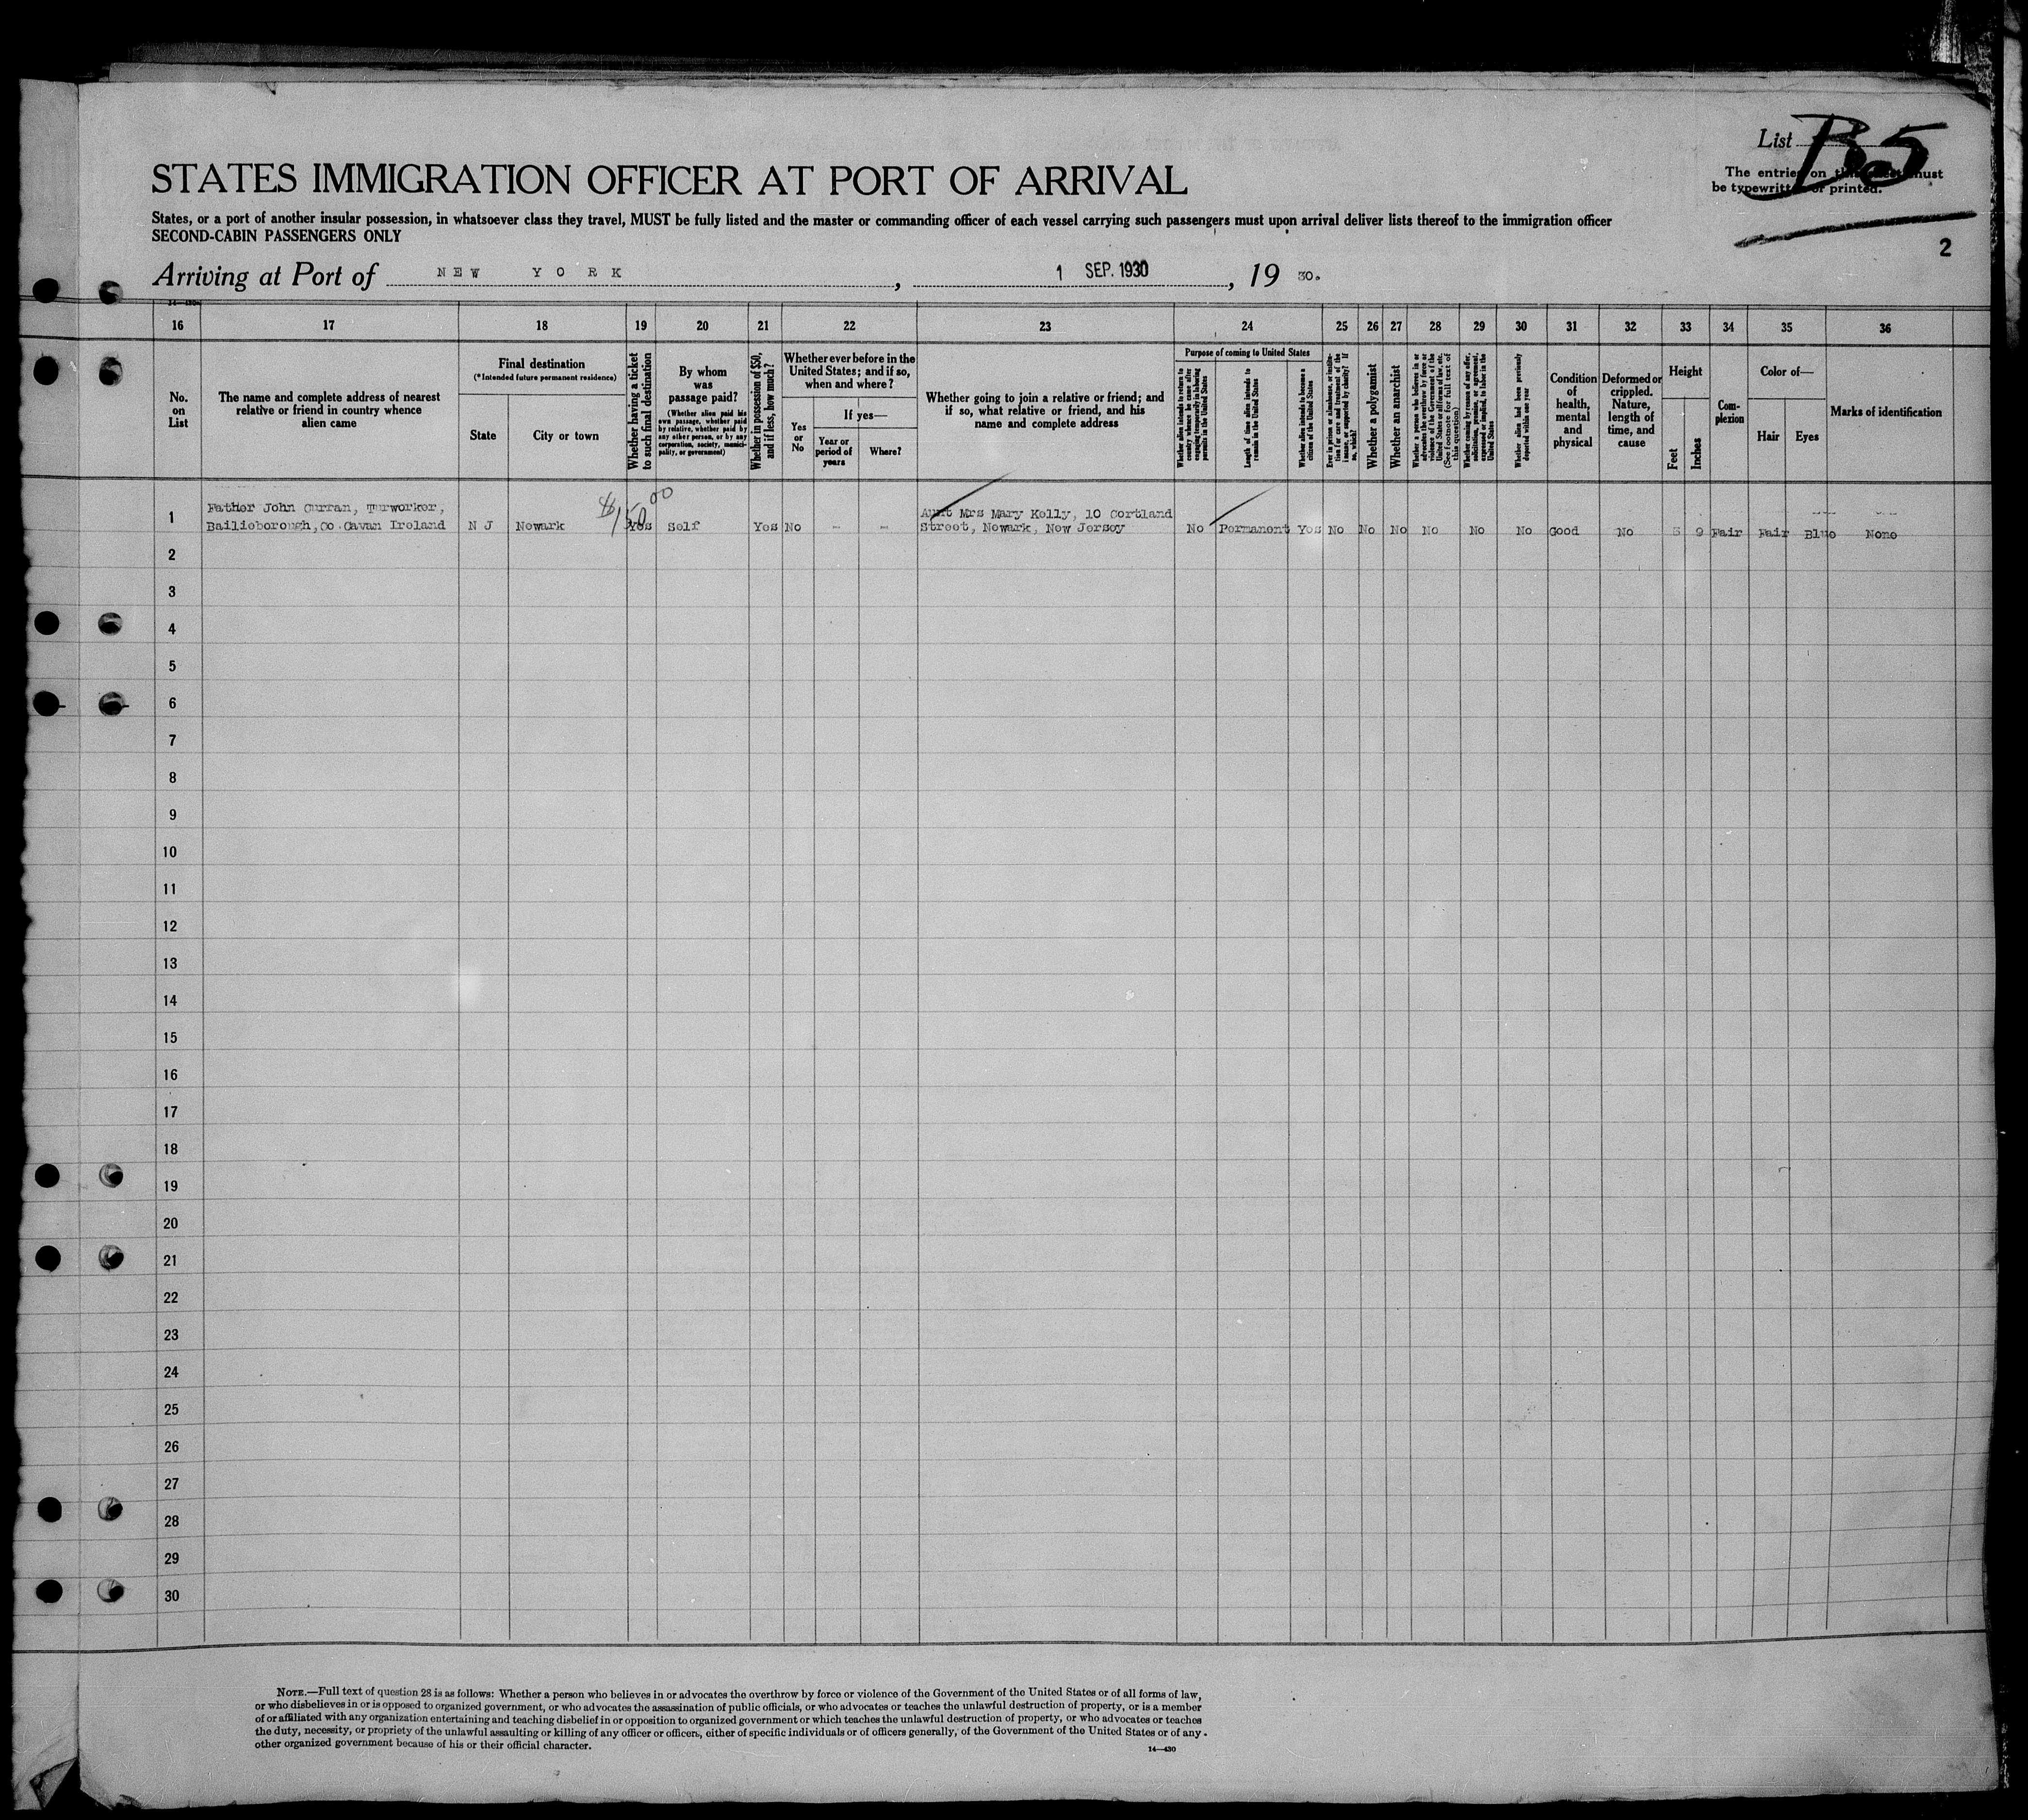 List B-5
The entries on this sheet must
be typewritten or printed.
STATES IMMIGRATION OFFICER AT PORT OF ARRIVAL
States, or a port of another insular possession, in whatsoever class they travel, MUST be fully listed and the master or commanding officer of each vessel carrying such passengers must upon arrival deliver lists thereof to the immigration officer
SECOND-CABIN PASSENGERS ONLY
2
Arriving at Port of NEW YORK, 1 SEP. 1930, 19 30.
16 17 18 19 20 21 22 23 24 25 26 27 28 29 30 31 32 33 34 35 36
No.
on
List
The name and complete address of nearest
relative or friend in country whence
alien came
Final destination
(*Intended future permanent residence)
State
City or town
Whether having a ticket
to such final destination
By whom
was
passage paid?
(Whether alien paid his
own passage, whether paid
by relative, whether paid by
any other person, or by any
corporation, society, munici-
pality, or government)
Whether in possession of $50,
and if less, how much?
Whether ever before in the
United States; and if so,
when and where?
Yes
or
No
If yes—
Year or
period of
years
Where?
Whether going to join a relative or friend; and
if so, what relative or friend, and his
name and complete address
Purpose of coming to United States
Whether alien intends to return to
country whence he came after
engaging temporarily in laboring
pursuits in the United States
Length of time alien intends to
remain in the United States
Whether alien intends to become a
citizen of the United States
Ever in prison or almshouse, or institu-
tion for care and treatment of the
insane, or supported by charity? If
so, which?
Whether a polygamist
Whether an anarchist
Whether a person who believes in or
advocates the overthrow by force or
violence of the Government of the
United States or all forms of law, etc.
(See footnote for full text of
this question)
Whether coming by reason of any offer,
solicitation, promise, or agreement,
expressed or implied, to labor in the
United States
Whether alien had been previously
deported within one year
Condition
of
health,
mental
and
physical
Deformed or
crippled.
Nature,
length of
time, and
cause
Height
Feet
Inches
Com-
plexion
Color of—
Hair
Eyes
Marks of identification
1 Father John Curran, Turworker,
Bailieborough, Co. Cavan Ireland N J Newark $150.00 Yes Self Yes No - - Aunt Mrs Mary Kelly, 10 Cortland
Street, Newark, New Jersey No Permanent Yes No No No No No No Good No 5 9 Fair Fair Blue None
2
3
4
5
6
7
8
9
10
11
12
13
14
15
16
17
18
19
20
21
22
23
24
25
26
27
28
29
30
NOTE.—Full text of question 28 is as follows: Whether a person who believes in or advocates the overthrow by force or violence of the Government of the United States or of all forms of law,
or who disbelieves in or is opposed to organized government, or who advocates the assassination of public officials, or who advocates or teaches the unlawful destruction of property, or is a member
of or affiliated with any organization entertaining and teaching disbelief in or opposition to organized government or which teaches the unlawful destruction of property, or who advocates or teaches
the duty, necessity, or propriety of the unlawful assaulting or killing of any officer or officers, either of specific individuals or of officers generally, of the Government of the United States or of any
other organized government because of his or their official character.
14—430